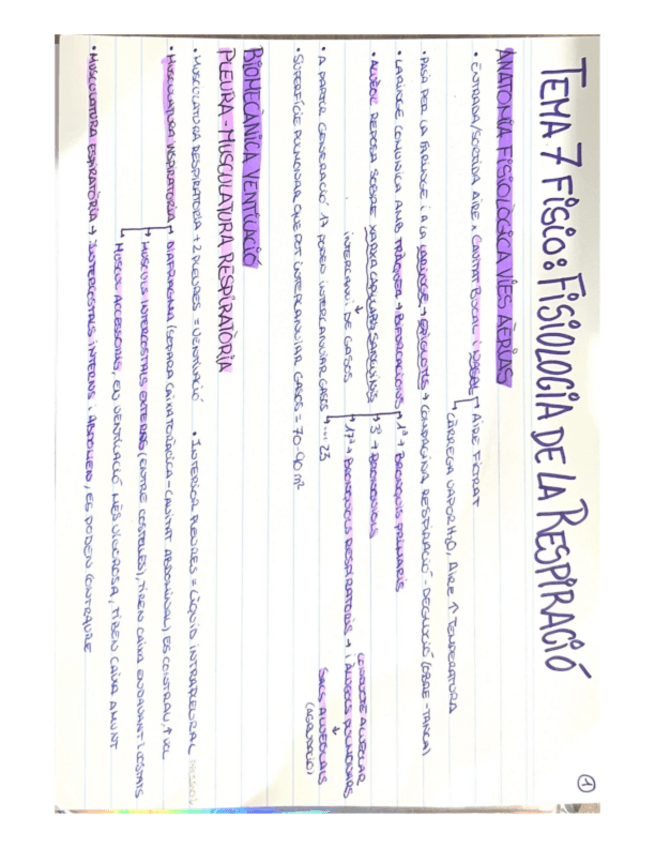 TEMA 7 FISIO: FISIOLOGIA DE LA RESPIRACIÓ
1
ANATOMIA FISIOLÒGICA VIES AÈRIAS
• ENTRADA/SORTIDA AIRE → CAVITAT BUCAL i NASAL → AIRE FILTRAT
→ CÀRREGA VAPOR H2O, AIRE ↑ TEMPERATURA
• PASA PER LA FARINGE i A LA LARINGE → EPIGLOTIS → COMPAGINA RESPIRACIÓ - DEGLUCIÓ (OBRE - TANCA)
• LARINGE COMUNICA AMB TRÀQUEA → BIFURCACIONS → 1ª → BRONQUIS PRIMARIS
→ 3ª → BRONQUIOLS
• ALVÈOL REPOSA SOBRE XARXA CAPILARS SANGUINIS
→ 17ª → BRONQUIOLS RESPIRATORIS → i ALVEOLS PULMONARS
↓
INTERCANVI DE GASOS
CONDUCTE ALVEOLAR
↓
SACS ALVEOLARS
• A PARTIR GENERACIÓ 17 PODEN INTERCANVIAR GASES
→ ... 23
• SUPERFÍCIE PULMONAR QUE POT INTERCANVIAR GASES = 70-90 m²
BIOMECÀNICA VENTILACIÓ
PLEURA - MUSCULATURA RESPIRATÒRIA
• MUSCULATURA RESPIRATORIA + 2 PLEURES = VENTILACIÓ • INTERIOR PLEURES = LÍQUID INTRAPLEURAL
• MUSCULATURA INSPIRATORIA → DIAFRAGMA (SEPARA CAIXA TORÀCICA - CAVITAT ABDOMINAL) ES CONTRAU, ↑ VOL
→ MUSCULS INTERCOSTALS EXTERNS (ENTRE COSTELLES), TIREN CAIXA ENDAVANT i COSTATS
MUSCLS ACCESSORIS, EN VENTILACIÓ MÉS VIGOROSA, TIREN CAIXA AMUNT
• MUSCULATURA ESPIRATÒRIA → INTERCOSTALS INTERNS i ABDOMEN, ES PODEN CONTRAURE